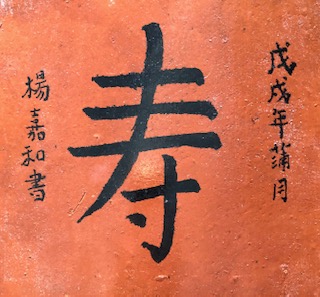 戊戌年蒲月
寿
楊嘉和書